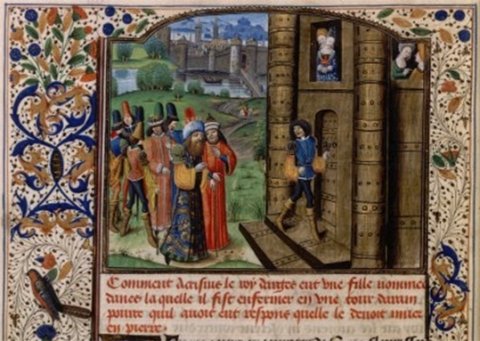 Comment Acrisius le roy darges eut vne fille nommee
danes la quelle il fist enfermer en vne tour darain
pource quil auoit eut respons quelle le deuoit muer
en pierre